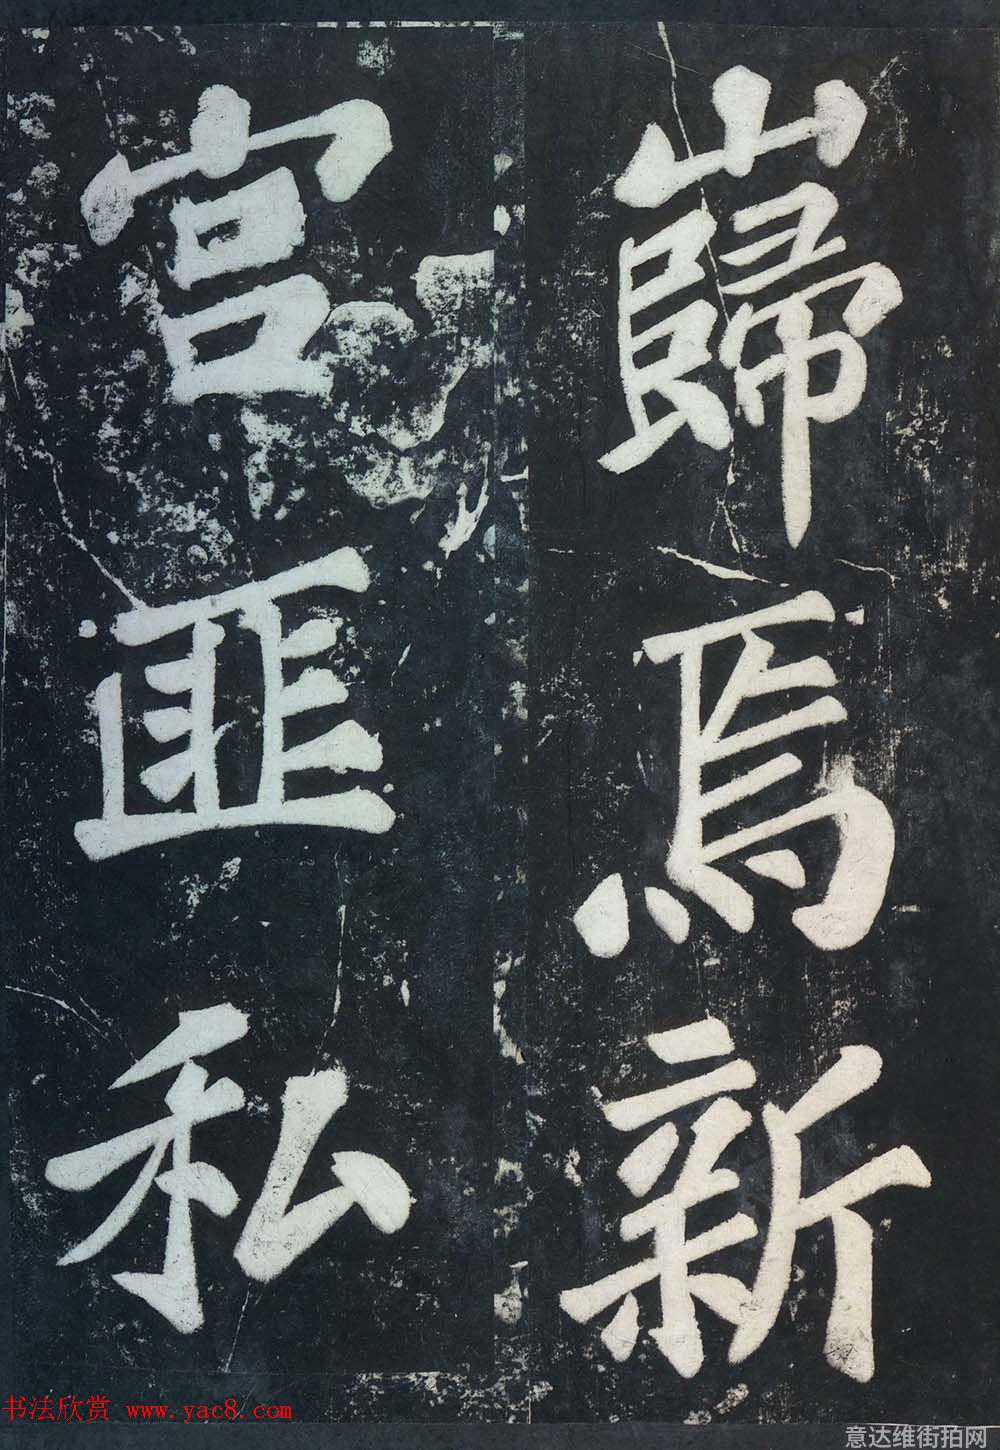 巋焉新
宮匪私
书法欣赏 www.yac8.com
意达维街拍网